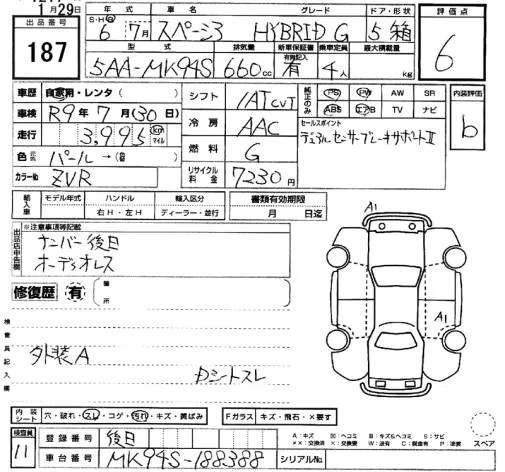 月29日
出品番号
187
年式 車名 グレード ドア・形状 評価点
S・H・R
6年 7月 スペーシア HYBRID G 5 箱
6
型式 排気量 新車保証書 乗車定員 最大積載量
有効記入
5AA-MK94S 660cc 有 4人 kg
車歴 自家用・レンタ( )
車検 R9年7月(30日)
走行 3,995 km マイル
色 パール→( )
カラーNo. ZVR
シフト IAT CVT
冷房 AAC
燃料 G
リサイクル料金 7230円
純正のみ PS PW AW SR
ABS エアB TV ナビ
セールスポイント
デュアルセンサーブレーキサポートⅡ
内装評価
b
輸入車 モデル年式 ハンドル 輸入区分
年 右H・左H ディーラー・並行
書類有効期限
月 日迄
出品店申告欄
※注意事項等記載
ナンバー後日
オーディオレス
修復歴 有 箇所
検査員記入欄
外装A
Dシートスレ
A1
A1
内装シート 穴・破れ・スレ・コゲ・汚れ・キズ・黄ばみ
Fガラス キズ・飛石・×要す
検査員
11
登録番号 後日
車台番号 MK94S-188388
シリアルNo.
A:キズ 凹:ヘコミ B:キズ&ヘコミ S:サビ
××:交換済 ×:要交換 W:波有 C:腐食有 P:塗装
スペア